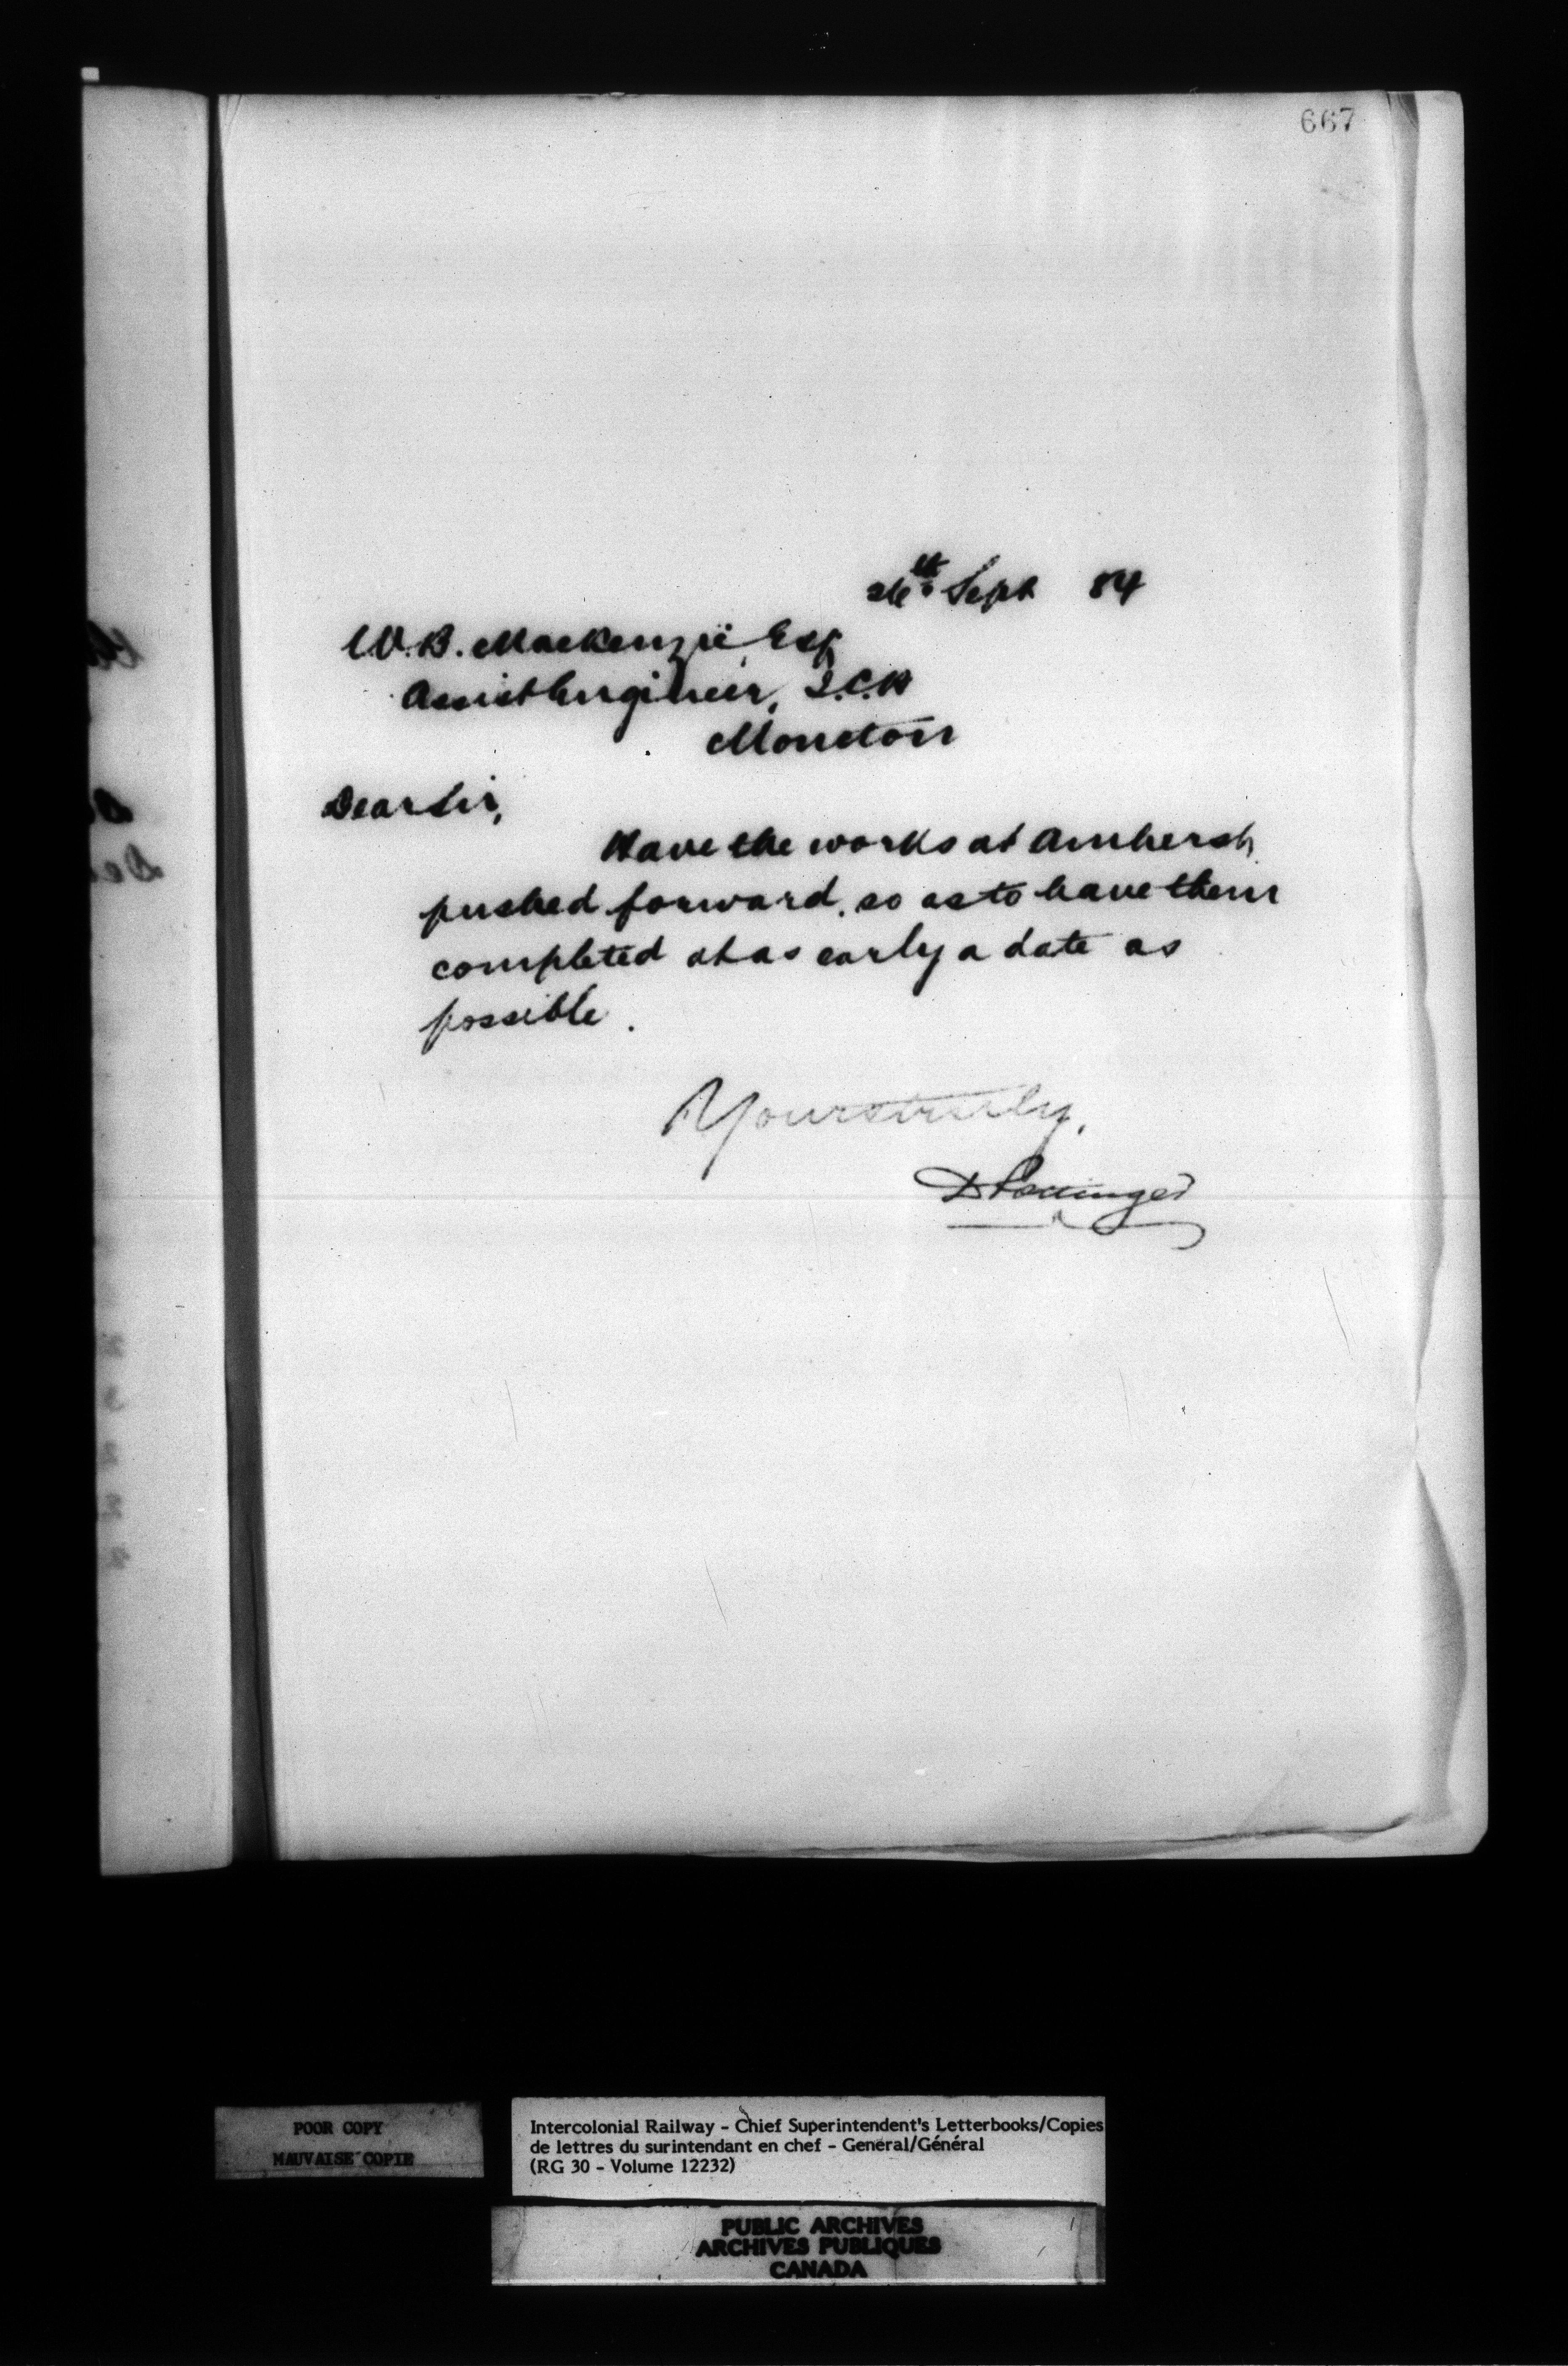 667
26th Sept 84
W.B. MacKenzie, Esq
Assist Engineer, I.C.R
Moncton
Dear Sir,
Have the works at Amherst
pushed forward, so as to have them
completed at as early a date as
possible.
Yours truly,
D Pottinger
POOR COPY
MAUVAISE COPIE
Intercolonial Railway - Chief Superintendent's Letterbooks/Copies
de lettres du surintendant en chef - General/Général
(RG 30 - Volume 12232)
PUBLIC ARCHIVES
ARCHIVES PUBLIQUES
CANADA